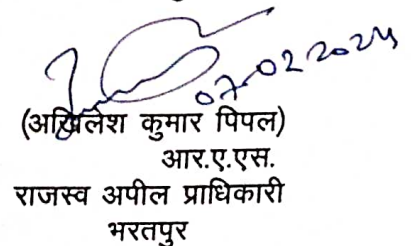 07-02-2024
(अखिलेश कुमार पिपल)
आर.ए.एस.
राजस्व अपील प्राधिकारी
भरतपुर